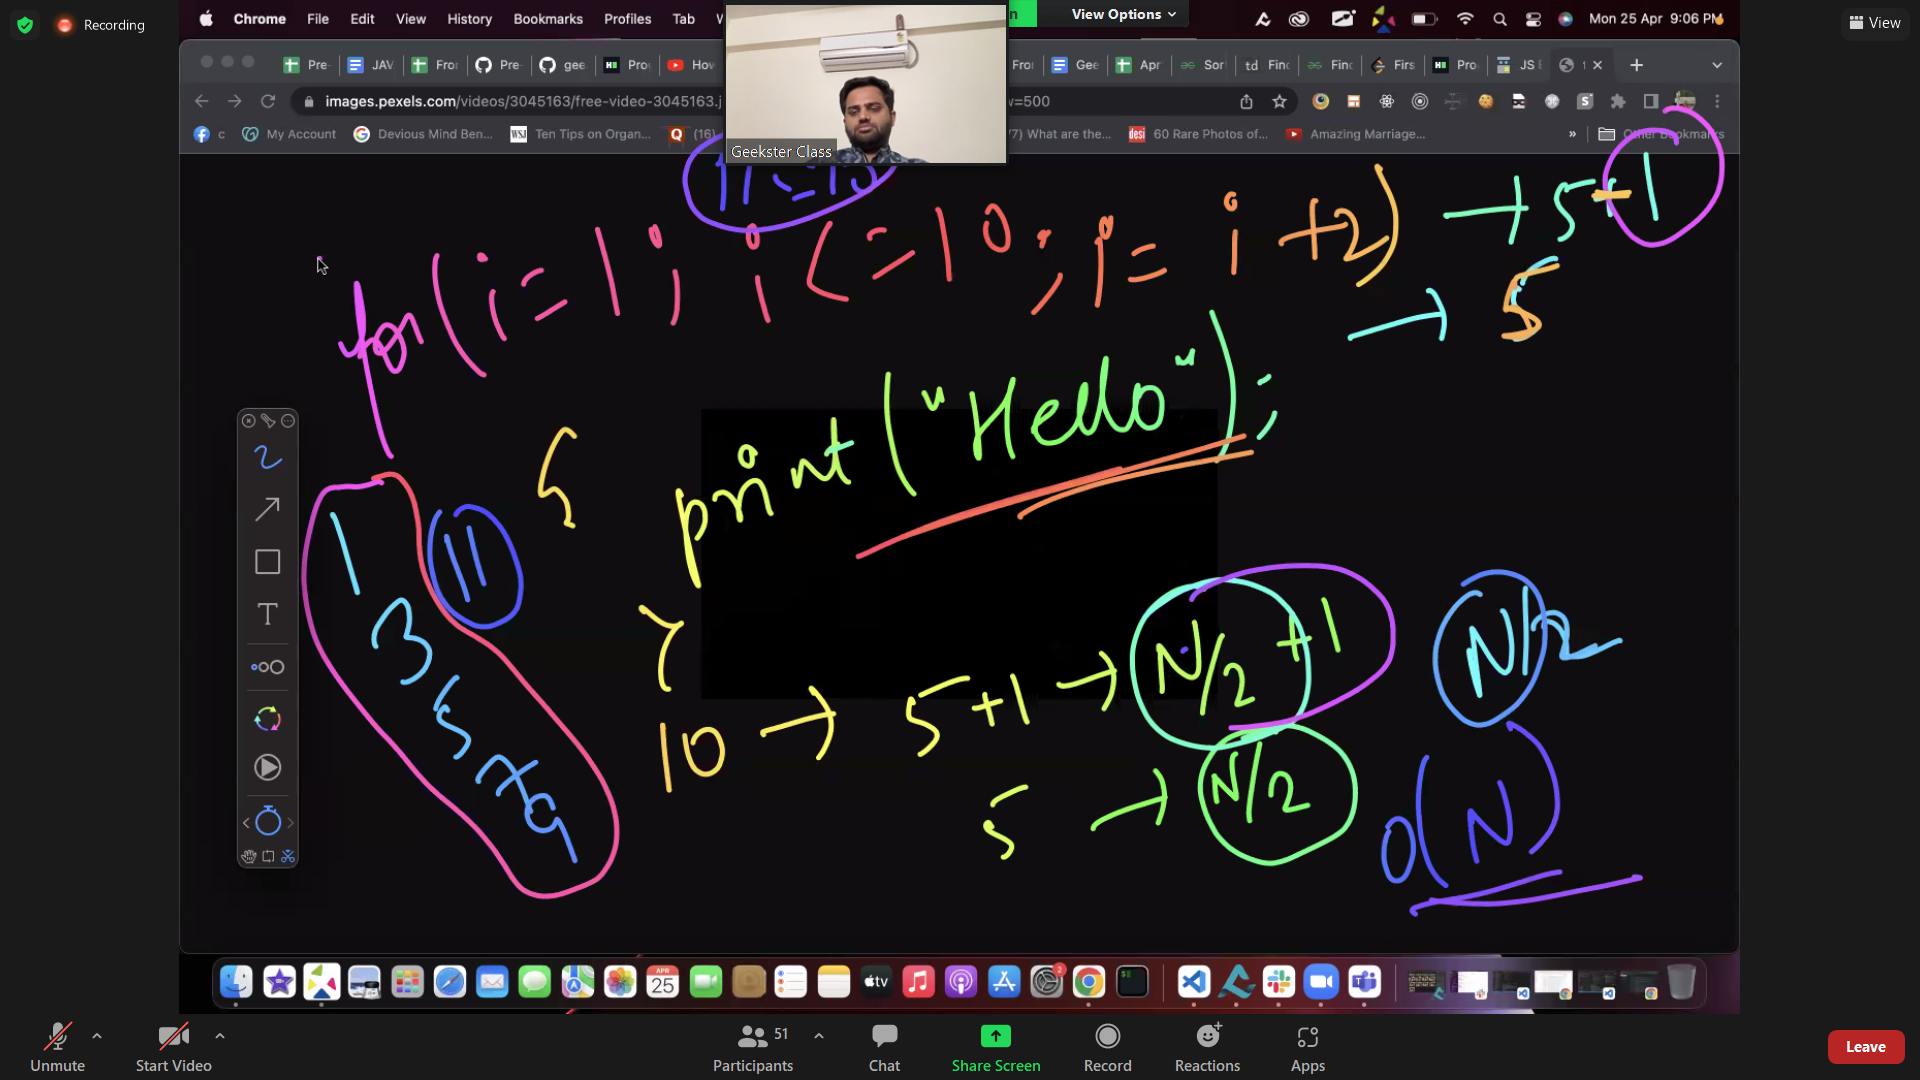 Recording
Chrome File Edit View History Bookmarks Profiles Tab
View Options
Mon 25 Apr 9:06 PM
View
Pre- JAV Fror Pre- gee Pro How
Fror Gee Apr Sor td Finc Finc Firs Pro JS E 1
images.pexels.com/videos/3045163/free-video-3045163.j
w=500
c My Account Devious Mind Ben... WSJ Ten Tips on Organ... (16)
/7) What are the... desi 60 Rare Photos of... Amazing Marriage... » Other Bookmarks
Geekster Class
11 <= 10
for(i=1; i<=10; i= i+2)
→ 5 + 1
→ 5
{
print("Hello");
}
1
11
3
5
7
9
10 → 5+1 → N/2 +1
N/2
5 → N/2
O(N)
2
T
APR
25
tv
2
Unmute
Start Video
51
Participants
Chat
Share Screen
Record
Reactions
Apps
Leave